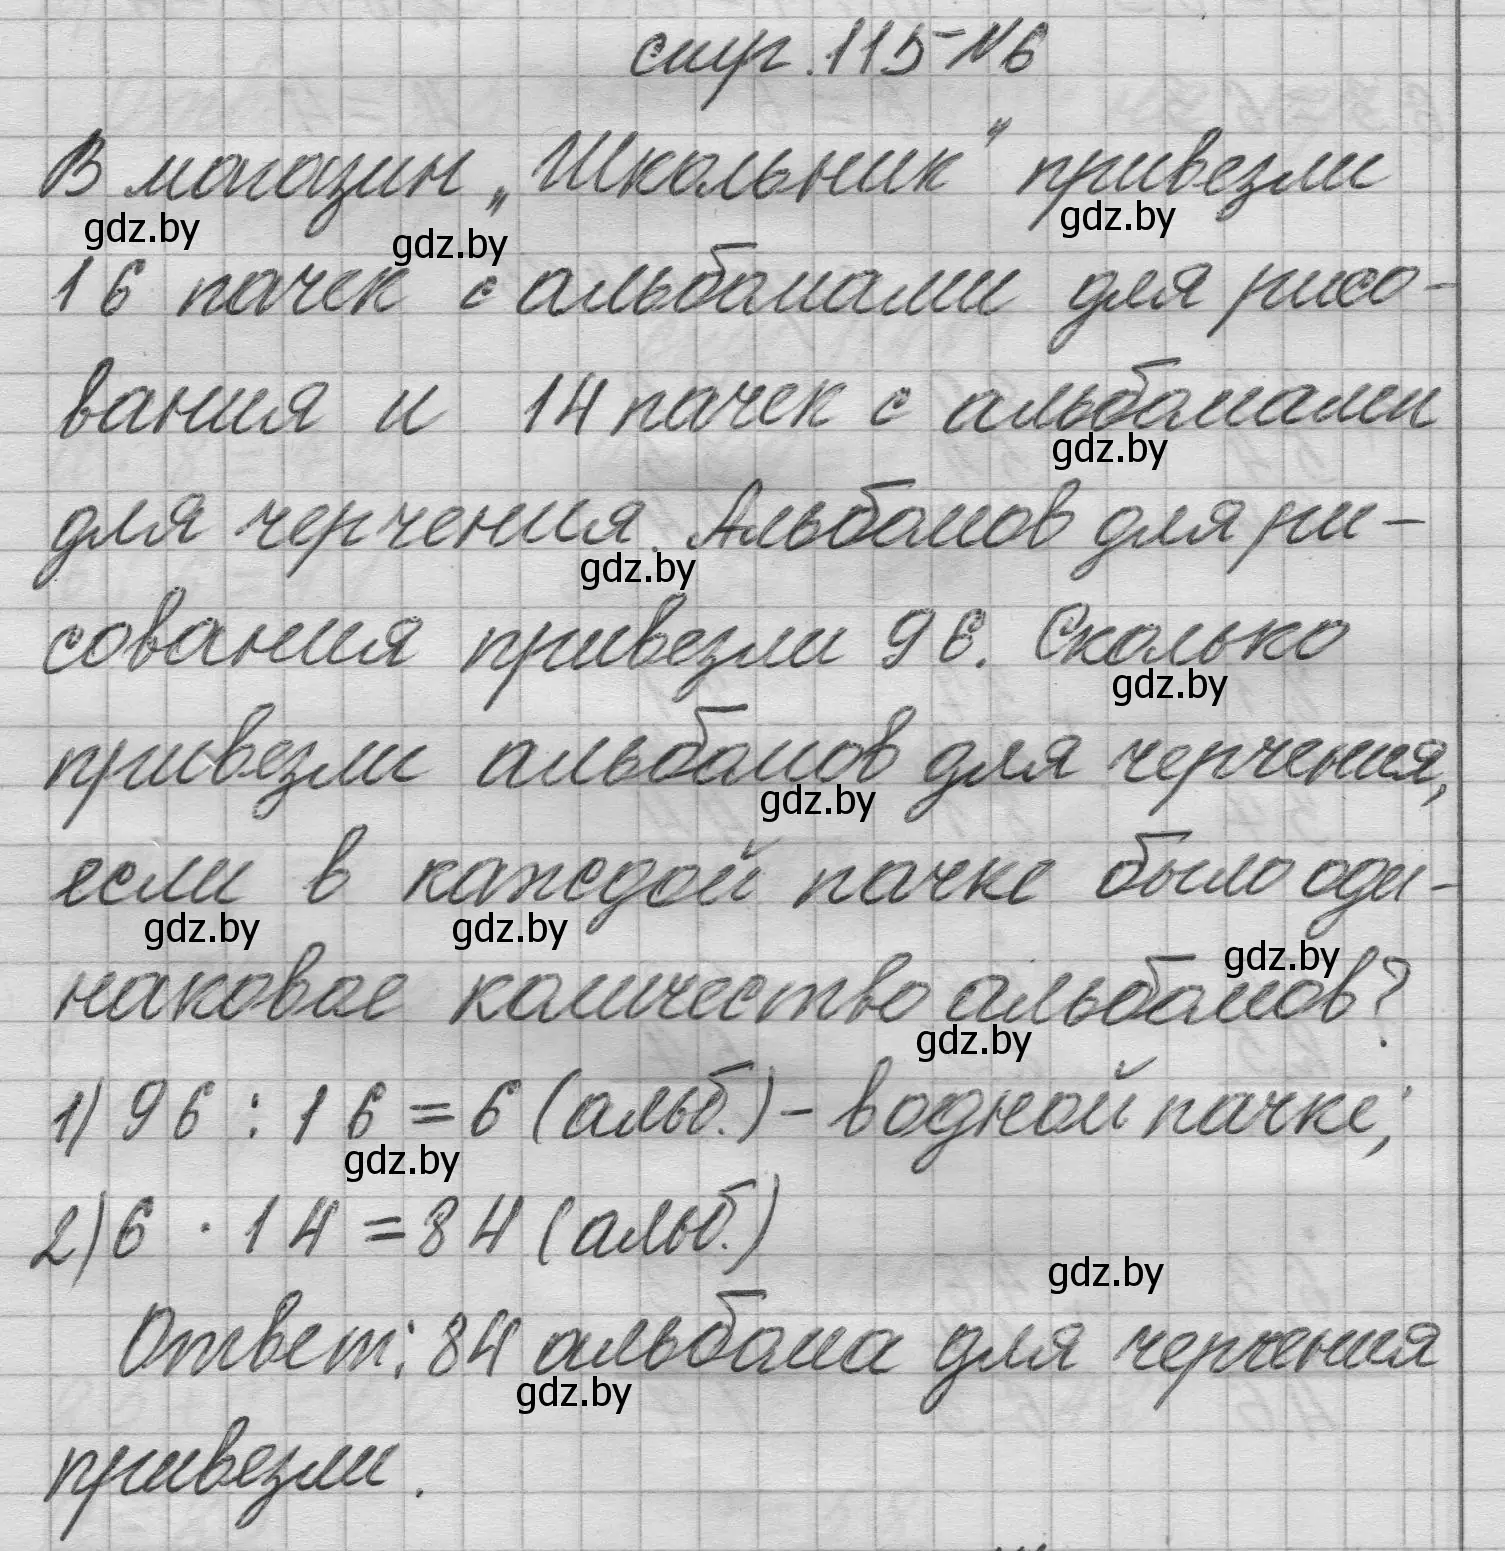 стр. 115 - №6
В магазин „Школьник" привезли
gdz.by gdz.by gdz.by
16 пачек с альбомами для рисо-
вания и 14 пачек с альбомами
gdz.by
для черчения. Альбомов для ри-
gdz.by
сования привезли 96. Сколько
gdz.by
привезли альбомов для черчения,
gdz.by
если в каждой пачке было оди-
gdz.by gdz.by gdz.by
наковое количество альбомов?
gdz.by
1) 96 : 16 = 6 (альб.) - в одной пачке;
gdz.by
2) 6 · 14 = 84 (альб.)
gdz.by
Ответ: 84 альбома для черчения
gdz.by
привезли.